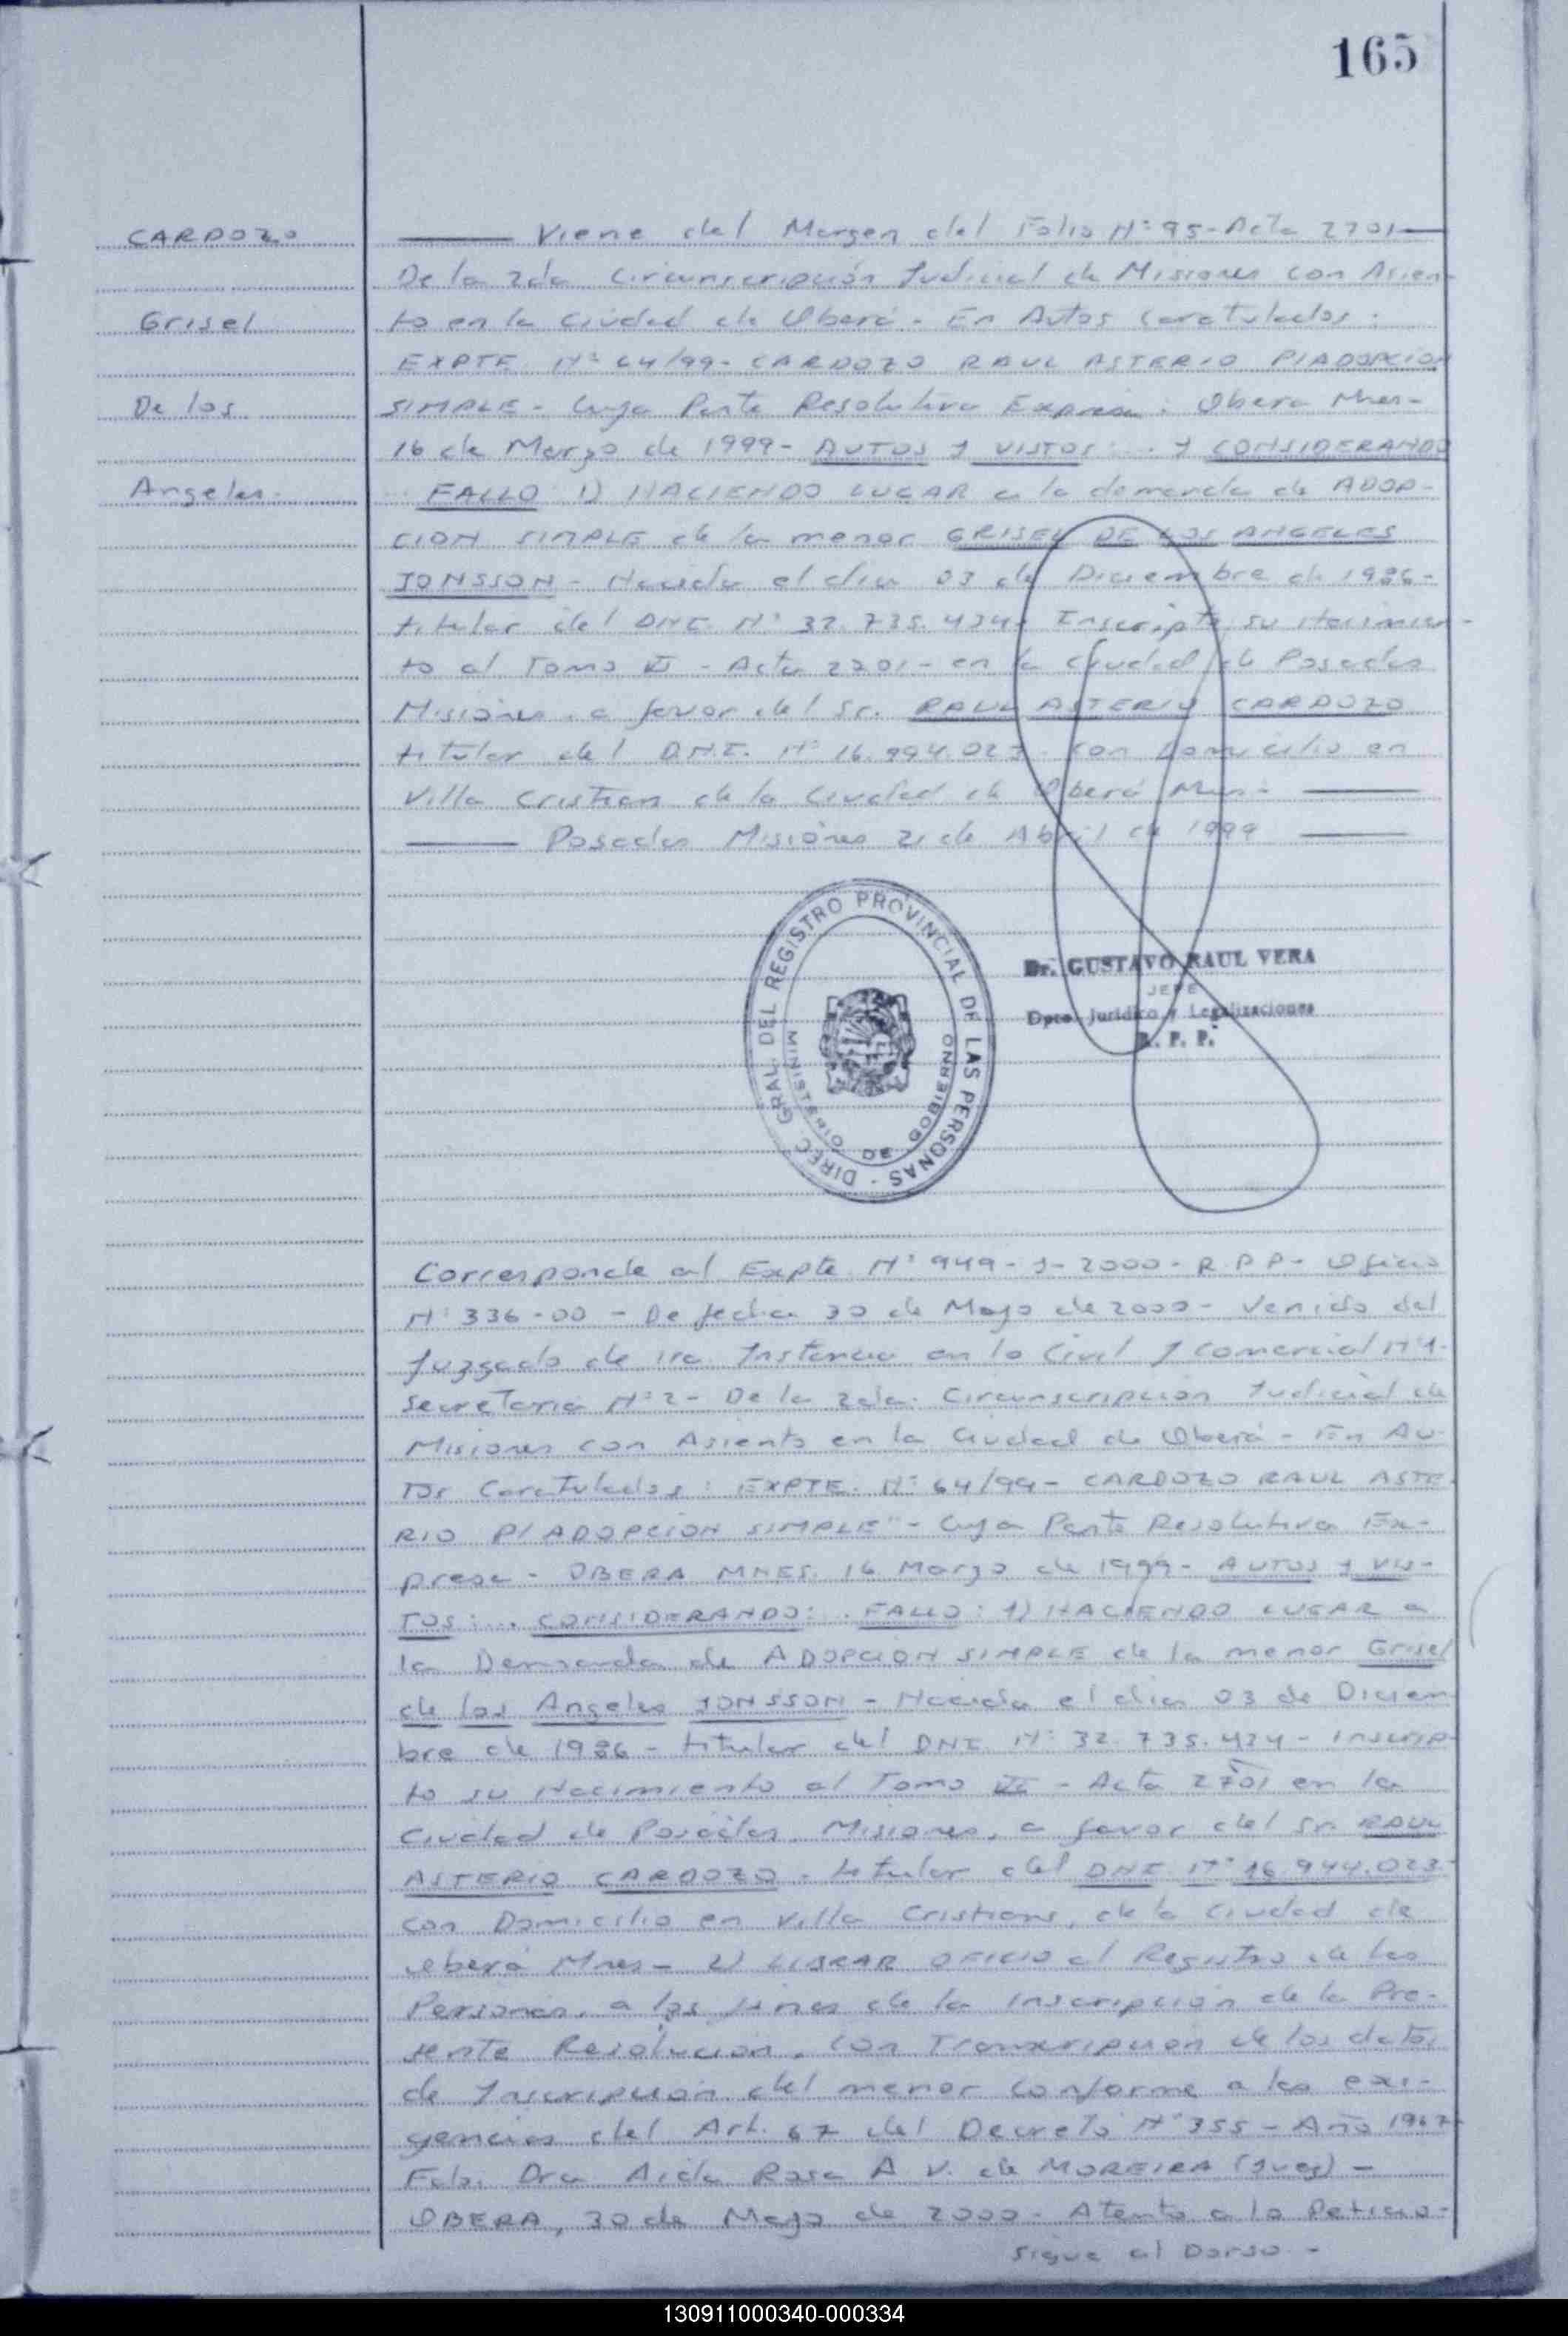 165
CARDOZO
Grisel
De los
Angeles.
Viene del Margen del Folio N° 95 - Acta 2701
De la 2da Circunscripción Judicial de Misiones con Asien-
to en la Ciudad de Oberá - En Autos Caratulados:
EXPTE N° 64/99 - CARDOZO RAUL ASTERIO P/ADOPCION
SIMPLE - Cuya Parte Resolutiva Expresa: Obera Mnes-
16 de Marzo de 1999 - AUTOS Y VISTOS: ... Y CONSIDERANDO
FALLO 1) HACIENDO LUGAR a la demanda de ADOP-
CION SIMPLE de la menor GRISEL DE LOS ANGELES
JONSSON - Nacida el dia 03 de Diciembre de 1986 -
titular del DNI N° 32.735.434 - Inscripto su Nacimien-
to al Tomo VI - Acta 2701 - en la Ciudad de Posadas
Misiones, a favor del Sr. RAUL ASTERIO CARDOZO
titular del D.N.I. N° 16.994.023 - con Domicilio en
Villa Cristian de la Ciudad de Oberá Mnes -
Posadas Misiones 21 de Abril de 1999
DIREC. GRAL. DEL REGISTRO PROVINCIAL DE LAS PERSONAS -
MINISTERIO DE GOBIERNO
Dr. GUSTAVO RAUL VERA
JEFE
Dpto. Juridico y Legalizaciones
R. P. P.
Corresponde al Expte N° 949 - J - 2000 - R.P.P - Oficio
N° 336-00 - De fecha 30 de Mayo de 2000 - Venido del
Juzgado de 1ra Instancia en lo Civil y Comercial N° 1.
Secretaria N° 2 - De la 2da. Circunscripcion Judicial de
Misiones con Asiento en la Ciudad de Oberá - En Au-
tos Caratulados: EXPTE. N° 64/99 - CARDOZO RAUL ASTE
RIO P/ ADOPCION SIMPLE" - Cuya Parte Resolutiva Ex-
presa - OBERA MNES. 16 Marzo de 1999 - AUTOS Y VIS-
TOS: ... CONSIDERANDO: . FALLO: 1) HACIENDO LUGAR a
la Demanda de ADOPCION SIMPLE de la menor Grisel
de los Angeles JONSSON - Nacida el dia 03 de Diciem
bre de 1986 - titular del DNI N° 32.735.434 - Inscrip-
to su Nacimiento al Tomo VI - Acta 2701 en la
Ciudad de Posadas, Misiones, a favor del Sr. RAUL
ASTERIO CARDOZO - titular del DNI N° 16.944.023
con Domicilio en Villa Cristians, de la Ciudad de
Oberá Mnes - 2) LIBRAR OFICIO al Registro de las
Personas, a los fines de la Inscripción de la Pre-
sente Resolucion, con Transcripcion de los datos
de Inscripción del menor conforme a las exi-
gencias del Art. 67 del Decreto N° 355 - Año 1967
Fdo. Dra Aida Rosa A V. de MOREIRA (Juez) -
OBERA, 30 de Mayo de 2000 - Atento a lo Peticio-
Sigue al Dorso -
130911000340-000334